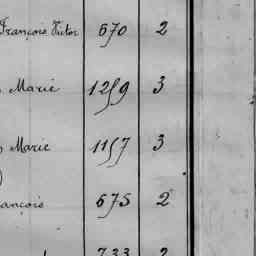 François Victor 670 2
Marie 1259 3
Marie 1157 3
ançois 675 2
733 2